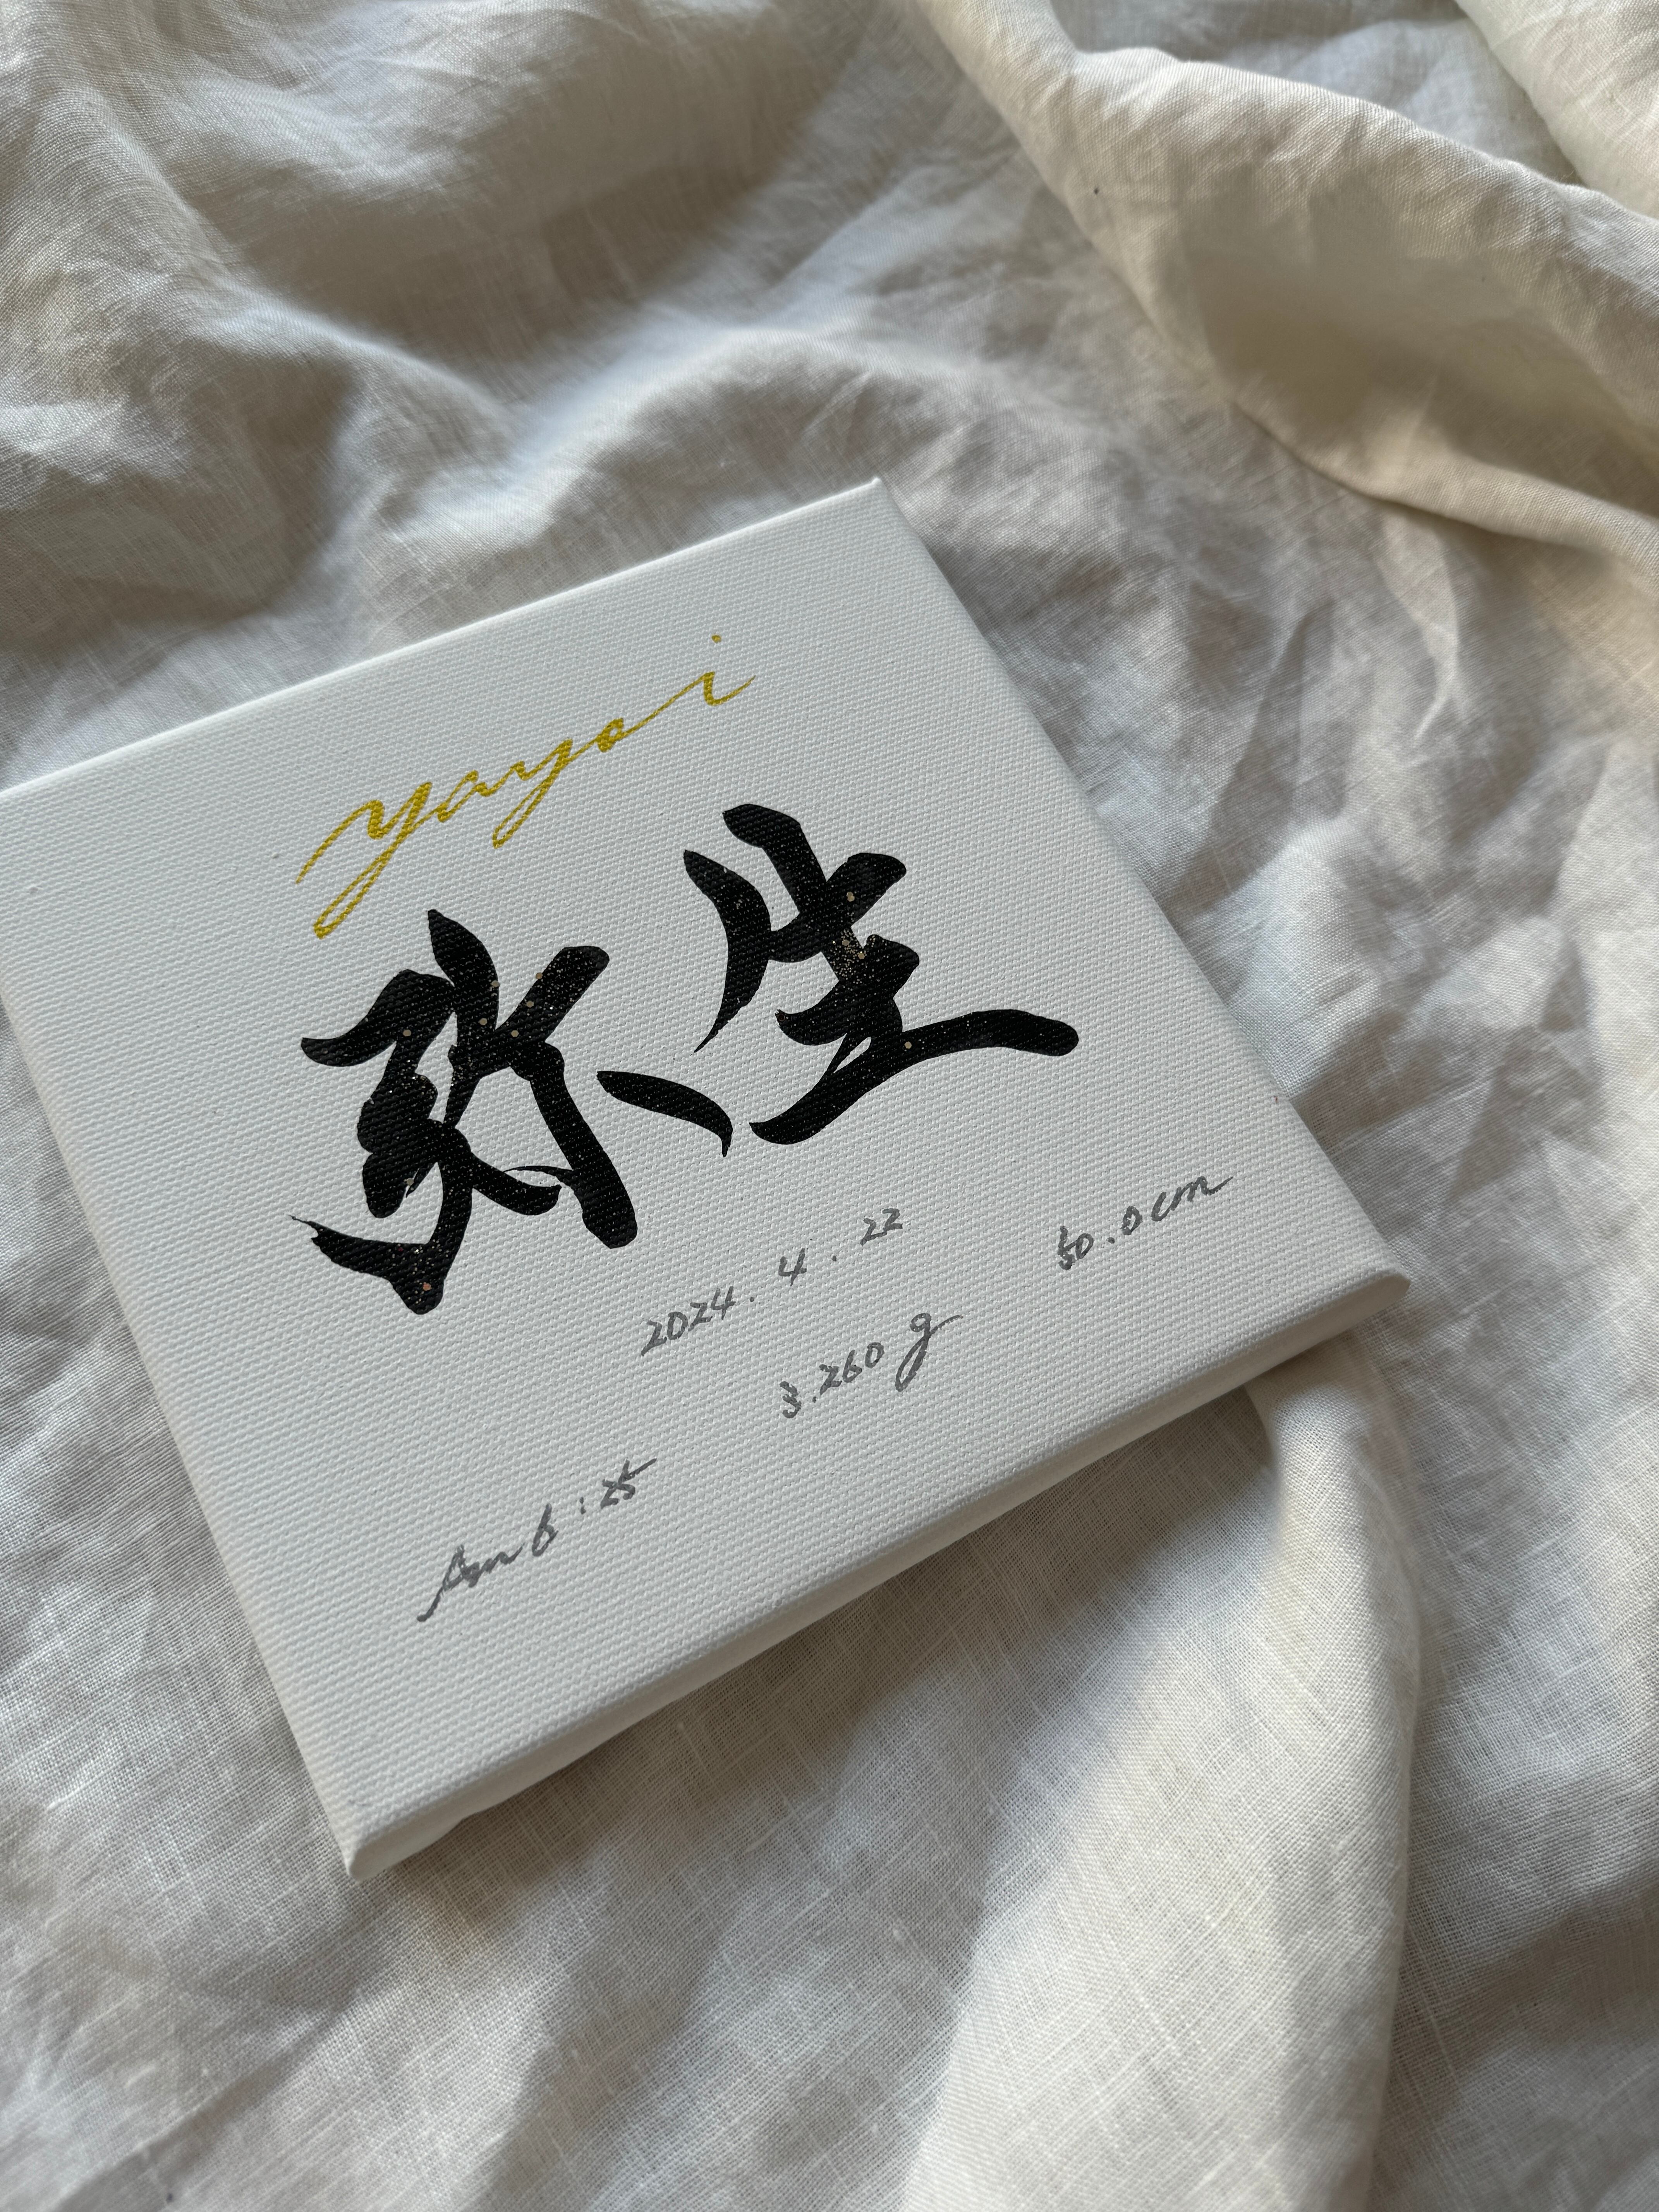 yayoi
弥生
2024. 4. 22
am 6:25 3.260g 50.0cm